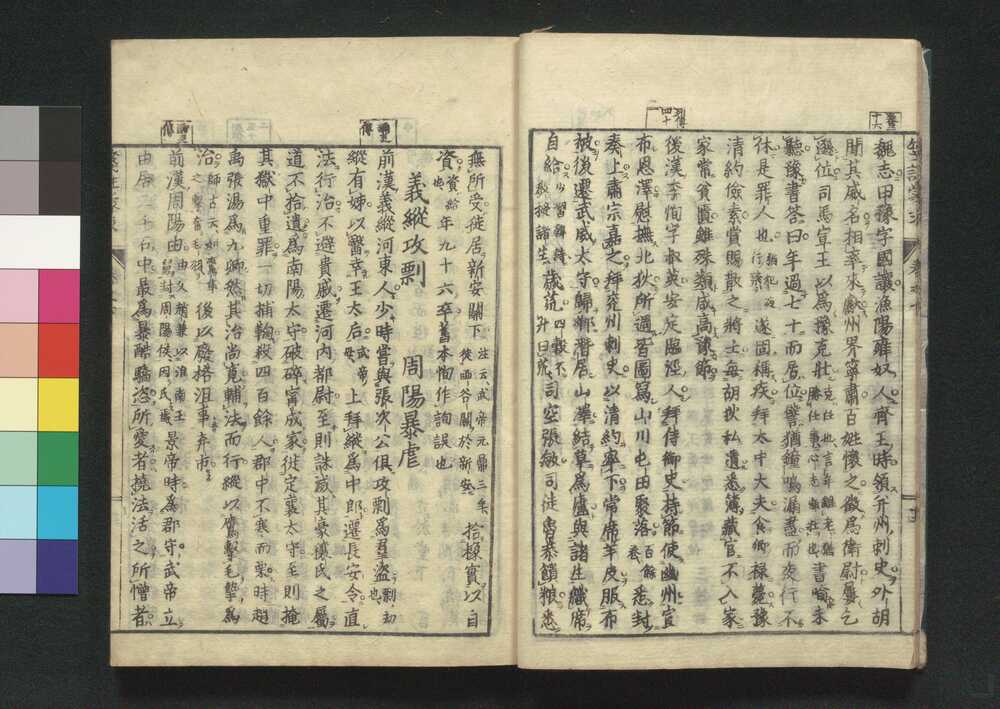 魏志田豫字國讓漁陽雍奴人齊王時領并州刺史外胡
聞其威名相率來獻州界寧肅百姓懷之徵爲衛尉屢乞
遜位司馬宣王以爲豫克壯書喻未
聽豫書答曰年過七十而居位譬猶鐘鳴漏盡而夜行不
休是罪人也遂固稱疾拜太中大夫食卿祿薨豫
清約儉素賞賜散之將士每胡狄私遺悉簿藏官不入家
家常貧匱雖殊類咸高豫節
後漢李恂字叔英安定臨涇人拜侍御史持節使幽州宣
布恩澤慰撫北狄所過皆圖寫山川屯田聚落百餘卷悉封
奏上肅宗嘉之拜兗州刺史以清約率下常席羊皮服布
被後遷武威太守歸鄉潛居山澤結草爲廬與諸生織席
自給歲荒司空張敏司徒魯恭饋粮悉
無所受徒居新安關下拾橡實以自
資年九十六卒舊本恂作詢誤也
義縱攻剽　周陽暴虐
前漢義縱河東人少時嘗與張次公俱攻剽爲羣盜
縱有姊以醫幸王太后上拜縱爲中郎遷長安令直
法行治不避貴戚遷河内都尉至則誅滅其豪穰氏之屬
道不拾遺爲南陽太守破碎甯成家徙定襄太守至則掩
其獄中重罪一切捕鞠殺四百餘人郡中不寒而栗時趙
禹張湯爲九卿然其治尚寬輔法而行縱以鷹擊毛摯爲
治後以廢格沮事弃市
前漢周陽由景帝時爲郡守武帝立
由居二千石中最爲暴酷驕恣所愛者撓法活之所憎者